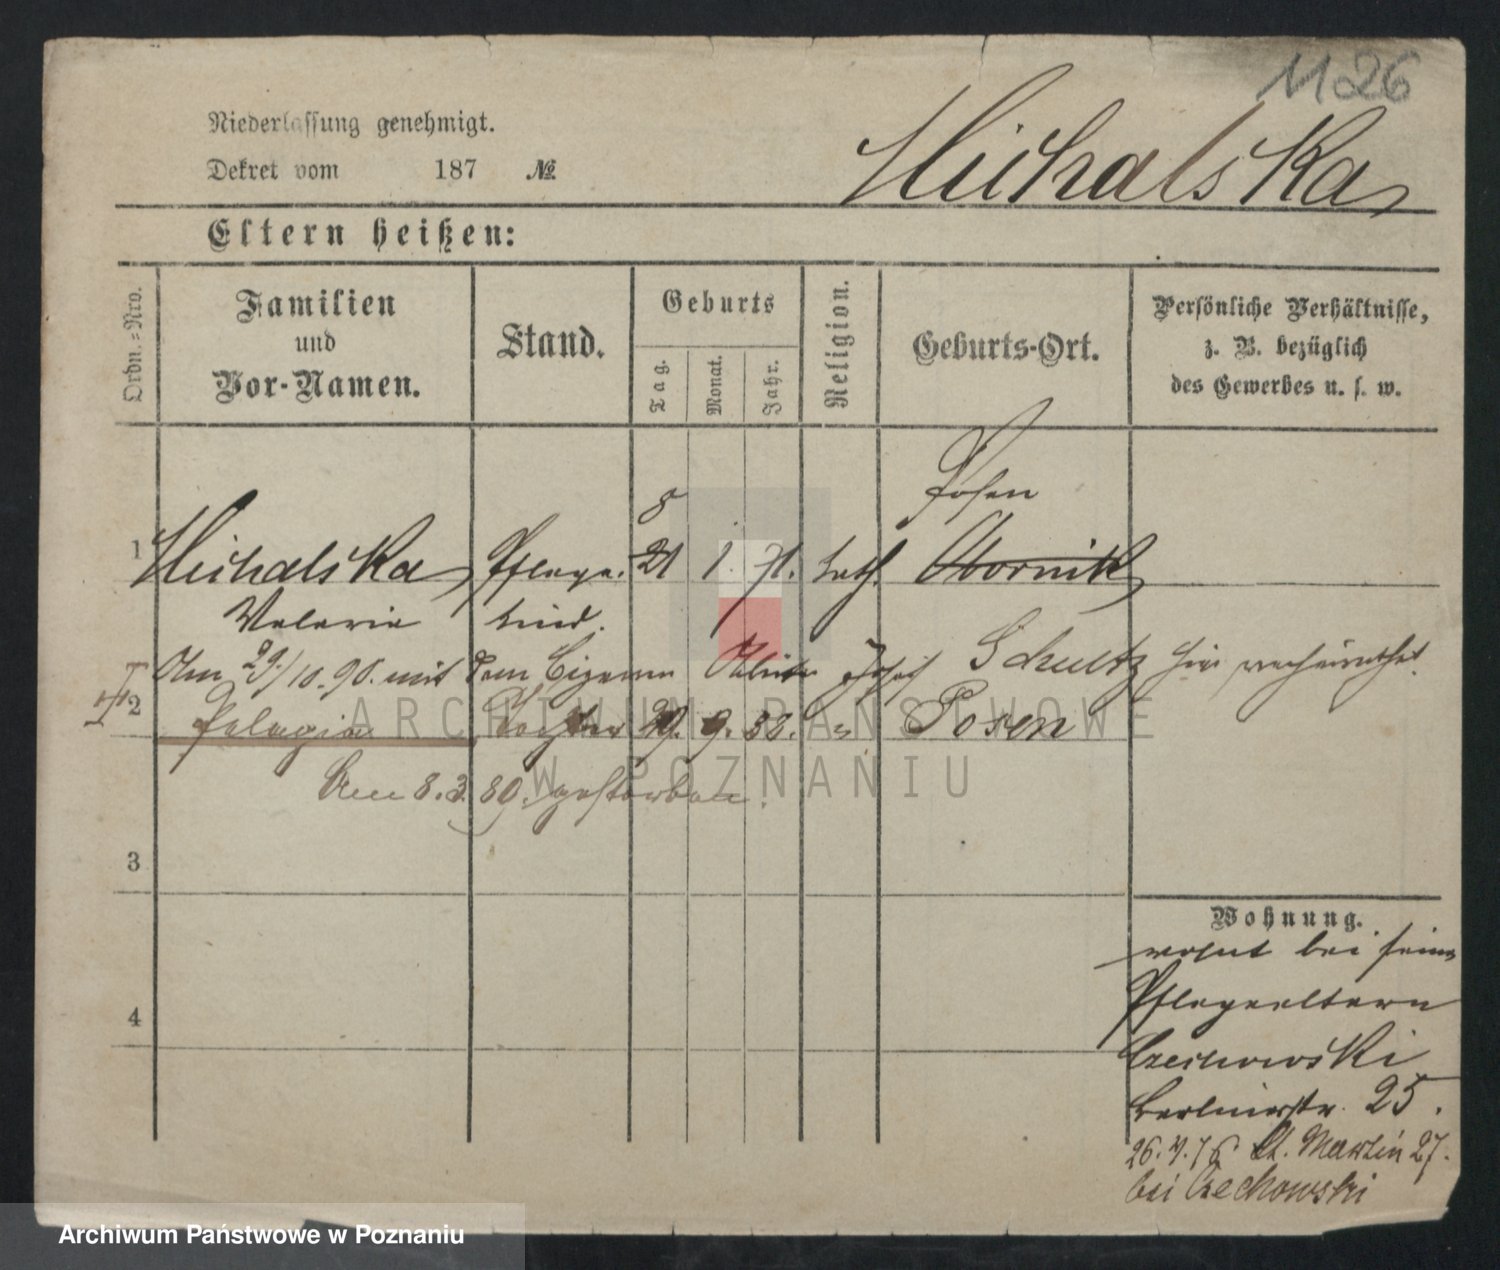 1126
Niederlassung genehmigt.
Dekret vom 187 №
Michalska
Eltern heißen:
Ordn.=Nro.
Familien und Vor-Namen.
Stand.
Geburts
Tag.
Monat.
Jahr.
Religion.
Geburts-Ort.
Persönliche Verhältnisse,
z. B. bezüglich
des Gewerbes u. s. w.
Posen
8
1 Michalska Pflege- 21 1. 71. kath. Obornik
Valerie kind.
Am 29/10.90. mit dem Cigarren Arbeiter Josef Schultz hier verheirathet.
2 Pelagia Tochter 29. 9. 82. " Posen
Am 8.3.89. gestorben.
ARCHIWUM PAŃSTWOWE
W POZNANIU
3
4
Wohnung.
wohnt bei seinen
Pflegeeltern
Czechowski
Berlinerstr. 25.
26.4.76 St. Martin 27.
bei Czechowski
Archiwum Państwowe w Poznaniu